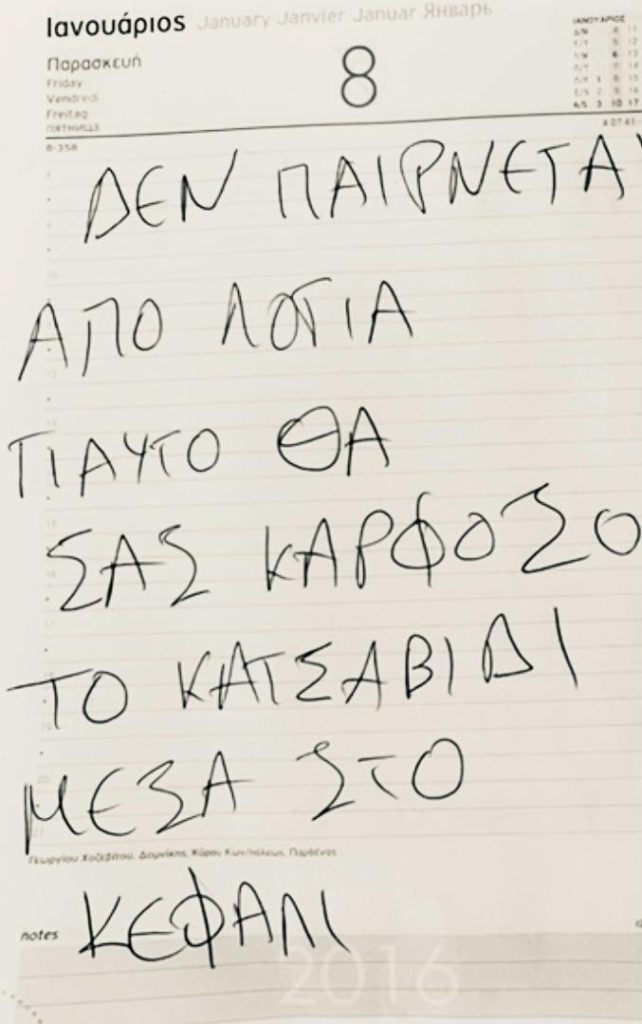 Ιανουάριος January Janvier Januar Январь
Παρασκευή
Friday
Vendredi
Freitag
ПЯТНИЦА
8
ΙΑΝΟΥΑΡΙΟΣ
8-358
ΔΕΝ ΠΑΙΡΝΕΤΑΙ
ΑΠΟ ΛΟΓΙΑ
ΓΙΑΥΤΟ ΘΑ
ΣΑΣ ΚΑΡΦΟΣΟ
ΤΟ ΚΑΤΣΑΒΙΔΙ
ΜΕΣΑ ΣΤΟ
Γεωργίου Χοζεβίτου, Δομνίκης, Κύρου Κων/πόλεως, Παρθένας
notes ΚΕΦΑΛΙ
2016